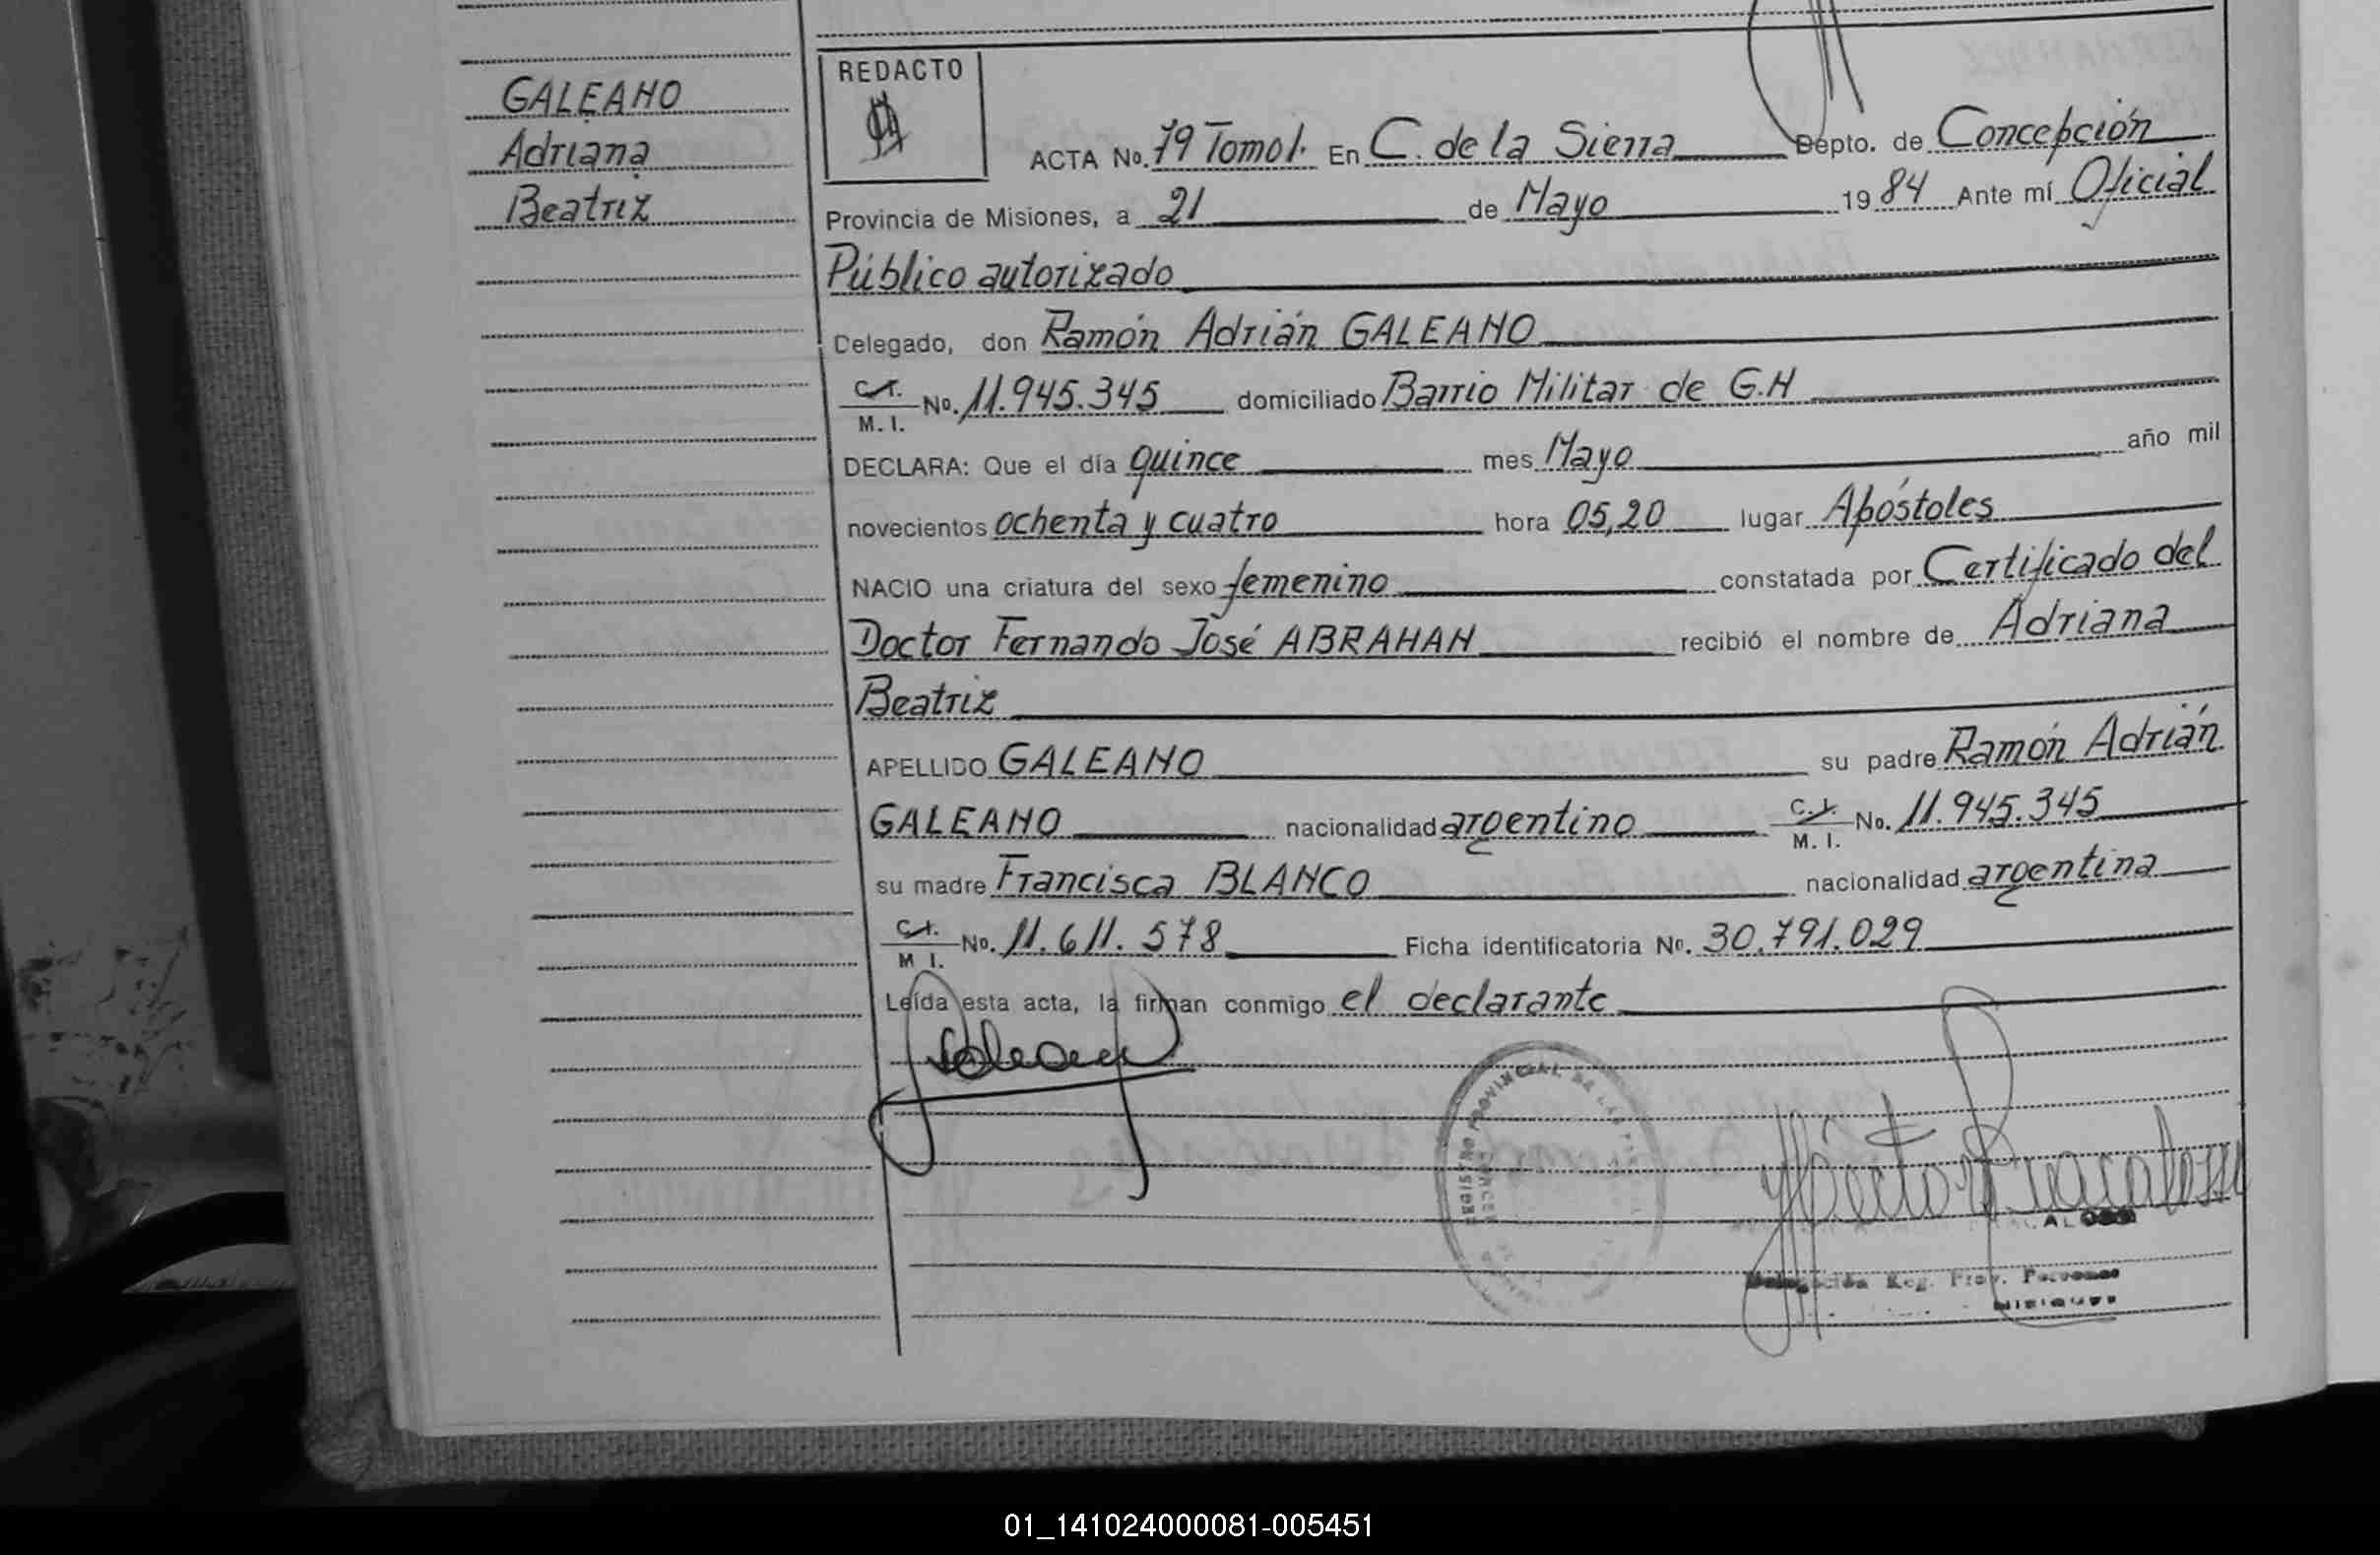 GALEANO
Adriana
Beatriz
REDACTO
ACTA No. 79 Tomo I. En C. de la Sierra Depto. de Concepción
Provincia de Misiones, a 21 de Mayo 1984 Ante mí Oficial
Público autorizado
Celegado, don Ramón Adrián GALEANO
C.I. M. I. No. 11.945.345 domiciliado Barrio Militar de G.H
DECLARA: Que el día quince mes Mayo año mil
novecientos ochenta y cuatro hora 05,20 lugar Apóstoles
NACIO una criatura del sexo femenino constatada por Certificado del
Doctor Fernando José ABRAHAN recibió el nombre de Adriana
Beatriz
APELLIDO GALEANO su padre Ramón Adrián
GALEANO nacionalidad argentino C.I. M. I. No. 11.945.345
su madre Francisca BLANCO nacionalidad argentina
C.I. M I. No. 11.611.578 Ficha identificatoria No. 30.791.029
Leída esta acta, la firman conmigo el declarante
REGISTRO PROVINCIAL DE LAS
Delegación Reg. Prov. Personas
MISIONES
01_141024000081-005451